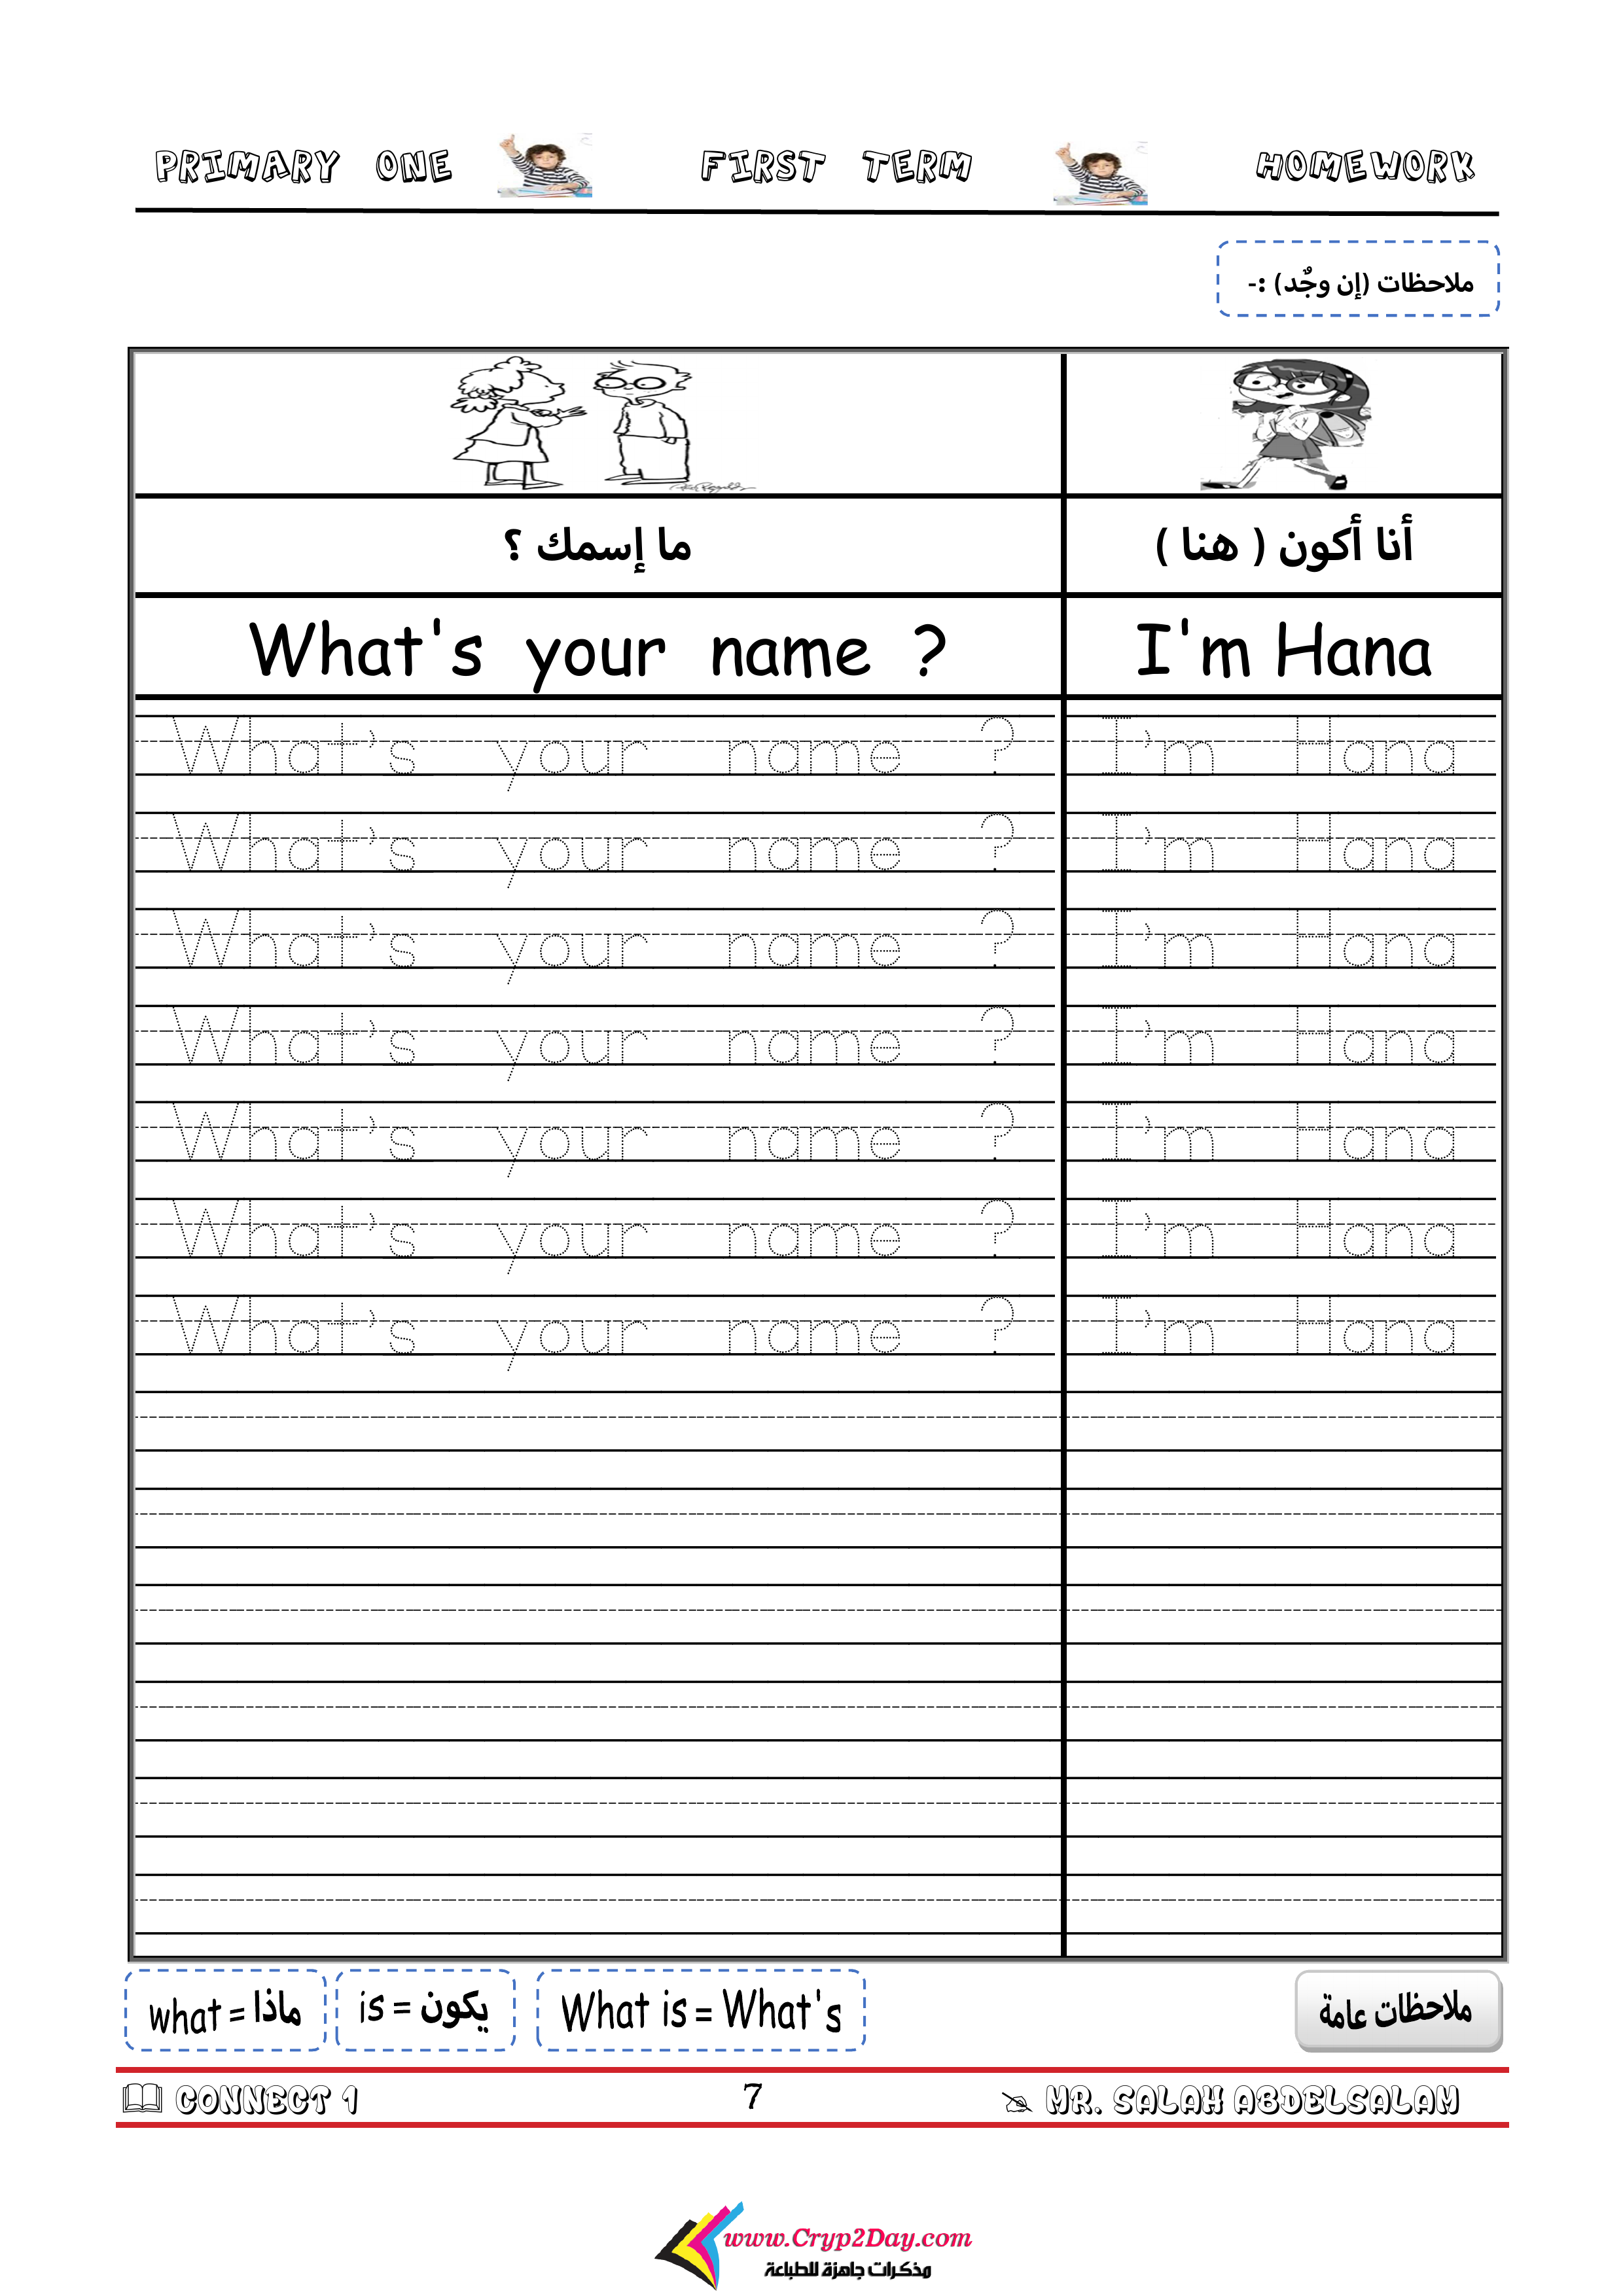 PRIMARY ONE FIRST TERM HOMEWORK
ملاحظات (إن وجُد) :-
ما إسمك ؟ أنا أكون ( هنا )
What's your name ? I'm Hana
What's your name ? I'm Hana
What's your name ? I'm Hana
What's your name ? I'm Hana
What's your name ? I'm Hana
What's your name ? I'm Hana
What's your name ? I'm Hana
What's your name ? I'm Hana
what = ماذا is = يكون What is = What's ملاحظات عامة
CONNECT 1 7 MR. SALAH ABDELSALAM
www.Cryp2Day.com
مذكرات جاهزة للطباعة